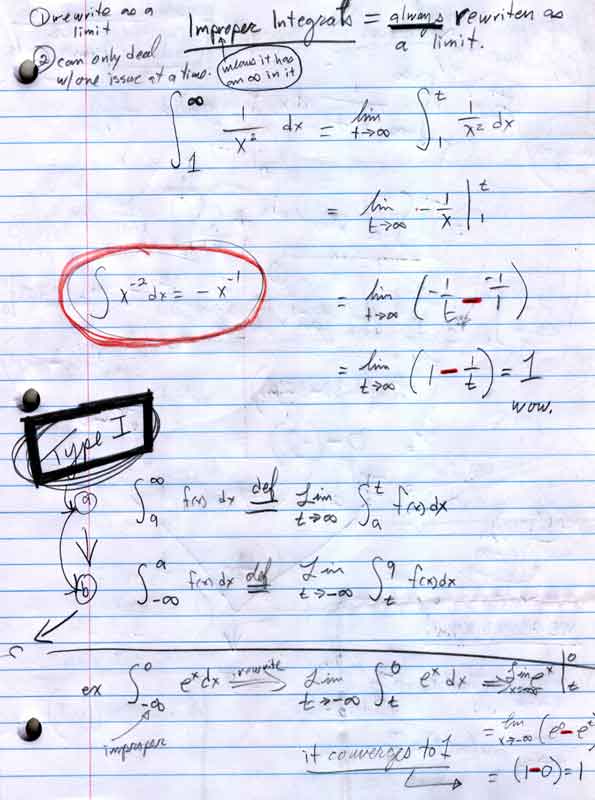 ① rewrite as a limit
② can only deal w/one issue at a time.
Improper Integrals = always rewriten as a limit.
means it has an ∞ in it
∫₁^∞ 1/x² dx = lim t→∞ ∫₁^t 1/x² dx
= lim t→∞ -1/x |₁^t
∫ x⁻² dx = - x⁻¹
= lim t→∞ (-1/t - -1/1)
= lim t→∞ (1 - 1/t) = 1
wow.
Type I
ⓐ ∫ₐ^∞ f(x) dx def = Lim t→∞ ∫ₐ^t f(x) dx
ⓑ ∫₋∞^a f(x) dx def = Lim t→-∞ ∫ₜ^a f(x) dx
ex ∫₋∞^0 eˣ dx rewrite ⟹ Lim t→-∞ ∫ₜ^0 eˣ dx = Lim x→-∞ eˣ |ₜ^0
improper
= lim x→-∞ (e⁰ - eᵗ
it converges to 1
= (1-0) = 1